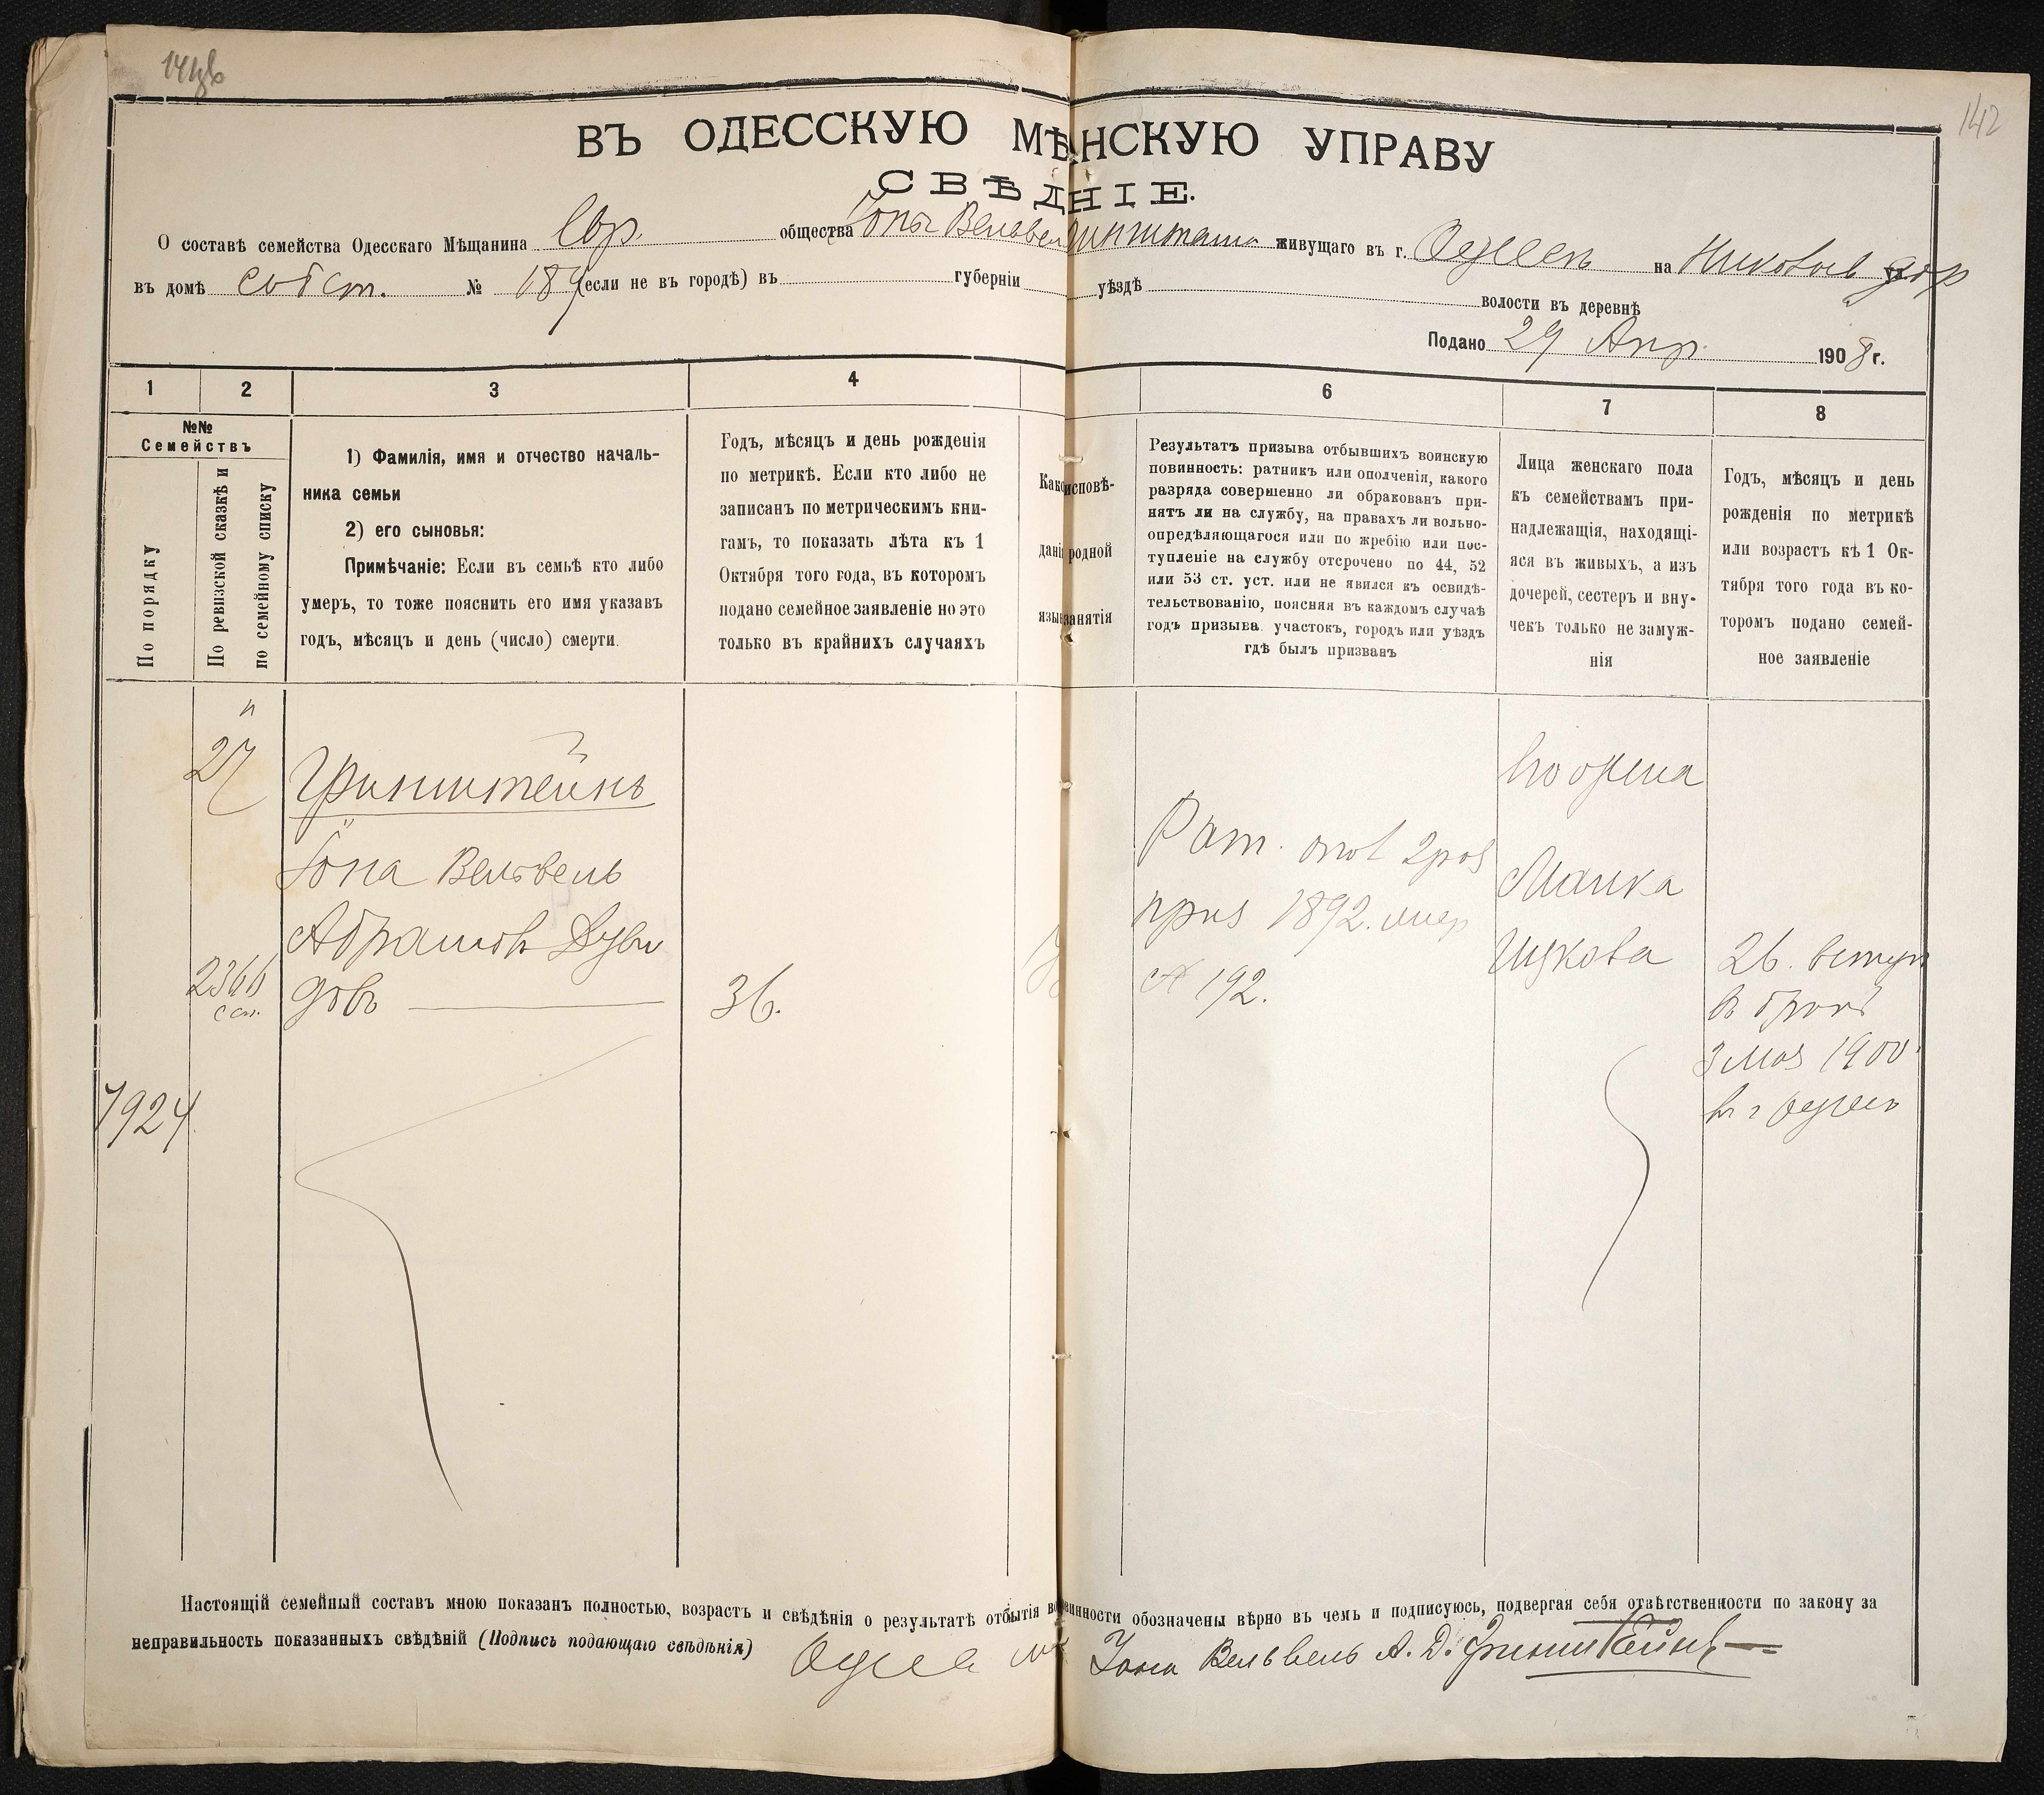 142
ВЪ ОДЕССКУЮ МѢ НСКУЮ УПРАВУ
СВѢДНІЕ.
О составѣ семейства Одесскаго Мѣщанина Евр. общества Іоны Вельвел живущаго въ г. Одессѣ на
въ домѣ собст. № 189 (если не въ городѣ) въ губерніи уѣздѣ волости въ деревнѣ
Подано 29 Апр. 1908 г.
1 2 3 4 6 7 8
№№
Семействъ
По порядку
По ревизской сказкѣ и
по семейному списку
1) Фамилія, имя и отчество началь-
ника семьи
2) его сыновья:
Примѣчаніе: Если въ семьѣ кто либо
умеръ, то тоже пояснить его имя указавъ
годъ, мѣсяцъ и день (число) смерти.
Годъ, мѣсяцъ и день рожденія
по метрикѣ. Если кто либо не
записанъ по метрическимъ кни-
гамъ, то показать лѣта къ 1
Октября того года, въ которомъ
подано семейное заявленіе но это
только въ крайнихъ случаяхъ
Како исповѣ-
дані родной
язык занятія
Результатъ призыва отбывшихъ воинскую
повинность: ратникъ или ополченія, какого
разряда совершенно ли обракованъ при-
нятъ ли на службу, на правахъ ли вольно-
опредѣляющагося или по жребію или пос-
тупленіе на службу отсрочено по 44, 52
или 53 ст. уст. или не явился къ освидѣ-
тельствованію, поясняя въ каждомъ случаѣ
годъ призыва участокъ, городъ или уѣздъ
гдѣ былъ призванъ
Лица женскаго пола
къ семействамъ при-
надлежащія, находящі-
яся въ живыхъ, а изъ
дочерей, сестеръ и вну-
чекъ только не замуж-
нія
Годъ, мѣсяцъ и день
рожденія по метрикѣ
или возрастъ къ 1 Ок-
тября того года въ ко-
торомъ подано семей-
ное заявленіе
27
Гринштейнъ
Іона Вельвель
Абрамов Дуви
дов
2366
36.
7924
Рат. опол 2 раз
приз 1892.
№ 192.
Его жена
Малка
Ицкова
26. вступ
в брак
3 мая 1900
в г Одессе
Настоящій семейный составъ мною показанъ полностью, возрастъ и свѣдѣнія о результатѣ отбытія во инности обозначены вѣрно въ чемъ и подписуюсь, подвергая себя отвѣтственности по закону за
неправильность показанныхъ свѣдѣній (Подпись подающаго свѣдѣнія) Одесса Іона Вельвель А. Д. Гринштейнъ